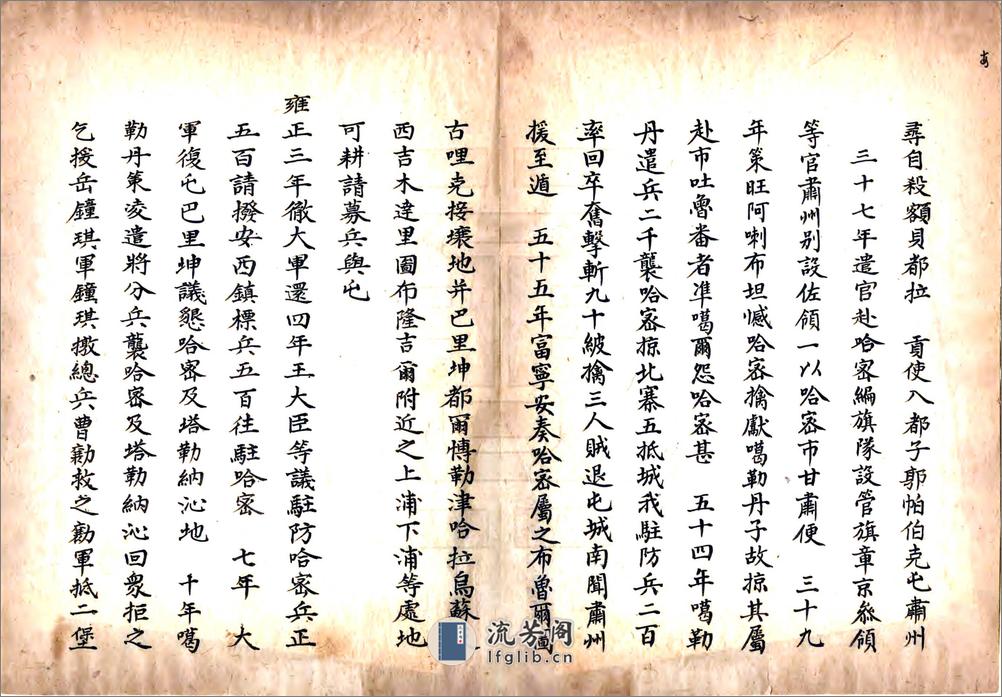 尋自殺額貝都拉　貢使入都子郭帕伯克屯肅州
三十七年遣官赴哈密編旗隊設管旗章京叅領
等官肅州别設佐領一以哈密市甘肅便　三十九
年策旺阿喇布坦憾哈密擒獻噶勒丹子故掠其屬
赴市吐魯番者凖噶爾怨哈密甚　五十四年噶勒
丹遣兵二千襲哈密掠北寨五抵城我駐防兵二百
率回卒奮擊斬九十級擒三人賊退屯城南聞肅州
援至遁　五十五年富寧安奏哈密屬之布魯爾圖
古哩克接壤地并巴里坤都爾愽勒津哈拉烏蘇
西吉木達里圖布隆吉爾附近之上浦下浦等處地
可耕請募兵與屯
雍正三年徹大軍還四年王大臣等議駐防哈密兵正
五百請撥安西鎮標兵五百往駐哈密　七年　大
軍復屯巴里坤議懇哈密及塔勒納沁地　十年噶
勒丹策凌遣將分兵襲哈密及塔勒納沁回衆拒之
乞援岳鐘琪軍鐘琪檄總兵曹勷救之勷軍抵二堡
流芳阁
lfglib.cn